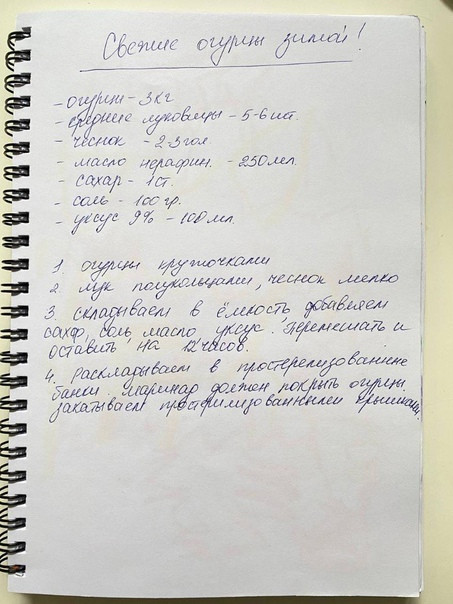 Свежие огурцы зимой!
- огурцы - 3 кг
- средние луковицы - 5-6 шт.
- чеснок - 2-3 гол.
- масло нерафин. - 250 мл.
- сахар - 1 ст.
- соль - 100 гр.
- уксус 9% - 100 мл.
1. огурцы кружочками
2. лук полукольцами, чеснок мелко
3. складываем в ёмкость добавляем
сахар, соль, масло, уксус. Перемешать и
оставить на 12 часов.
4. Раскладываем в простерелизованные
банки. Маринад должен покрыть огурцы,
закатываем простерилизованными крышками.